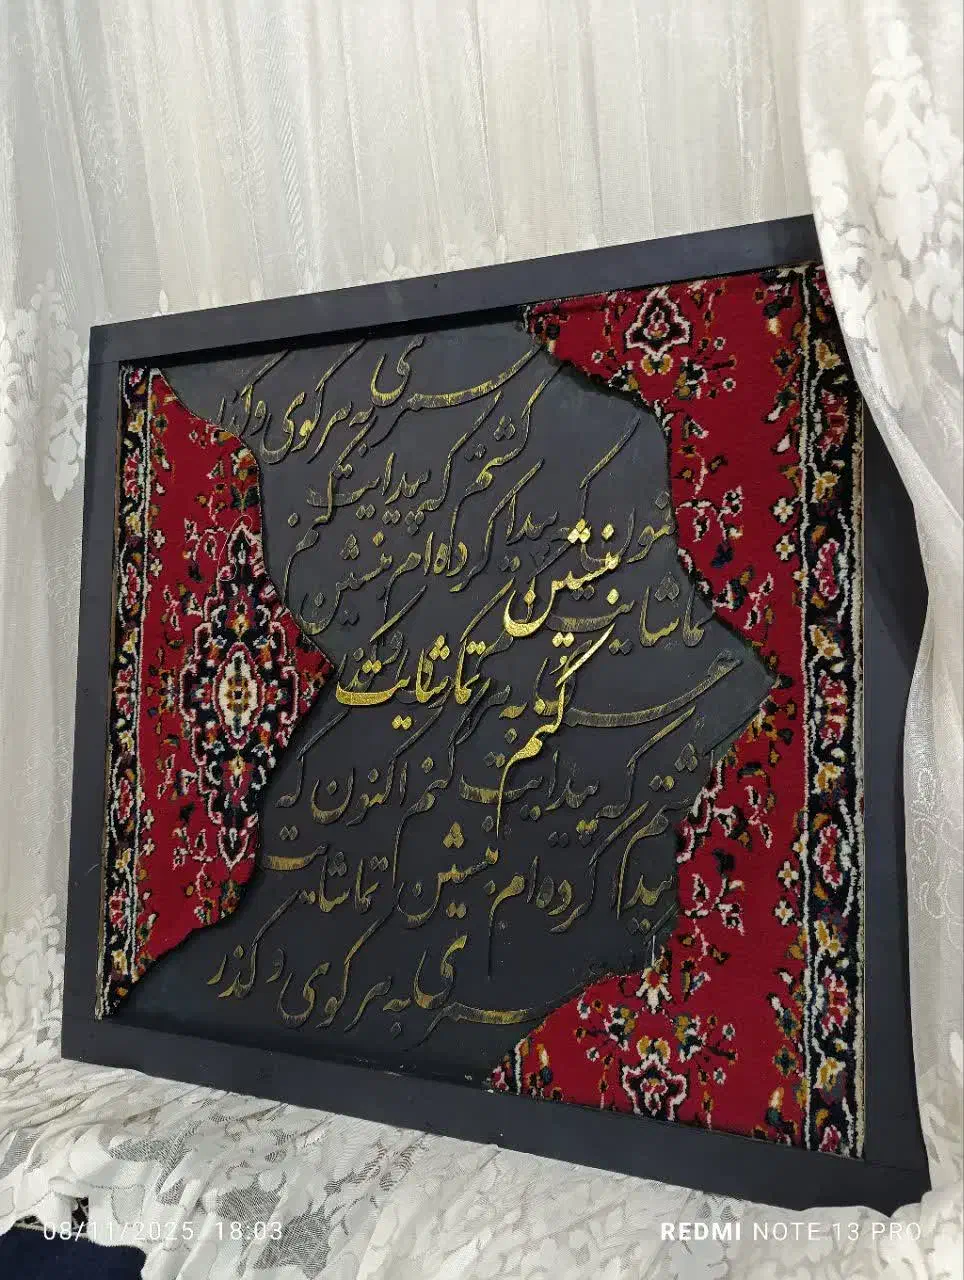 عمری به هر کوی و گذر
گشتم که پیدایت کنم
اکنون که پیدا کرده‌ام بنشین
تماشایت
بنشین
تماشایت
کنم
عمری به هر و گذر
گشتم که پیدایت کنم اکنون که
پیدا کرده‌ام بنشین تماشایت
عمری به هر کوی و گذر
08/11/2025 18:03
REDMI NOTE 13 PRO